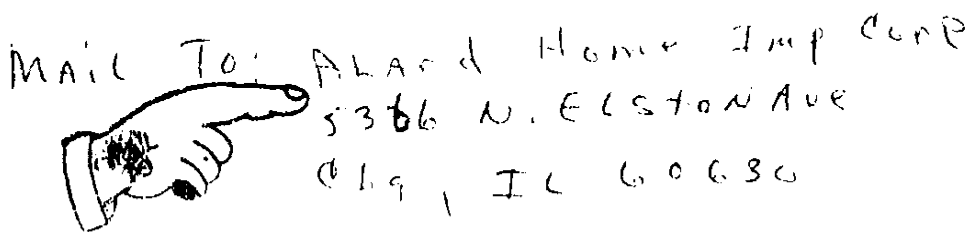 MAIL TO: ALArd Home Imp Corp
5366 N. ELStoN Ave
Chg, IL 60630